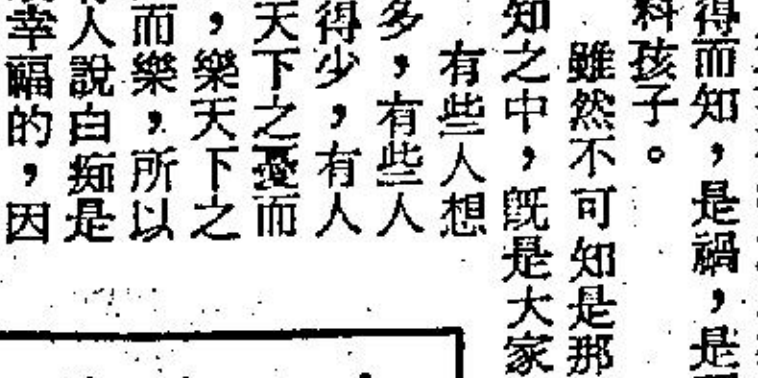 得而知，是禍，是
料孩子。
雖然不可知是那
知之中，既是大家
有些人想
多，有些人
得少，有人
天下之憂而
，樂天下之
而樂，所以
人說白痴是
幸福的，因